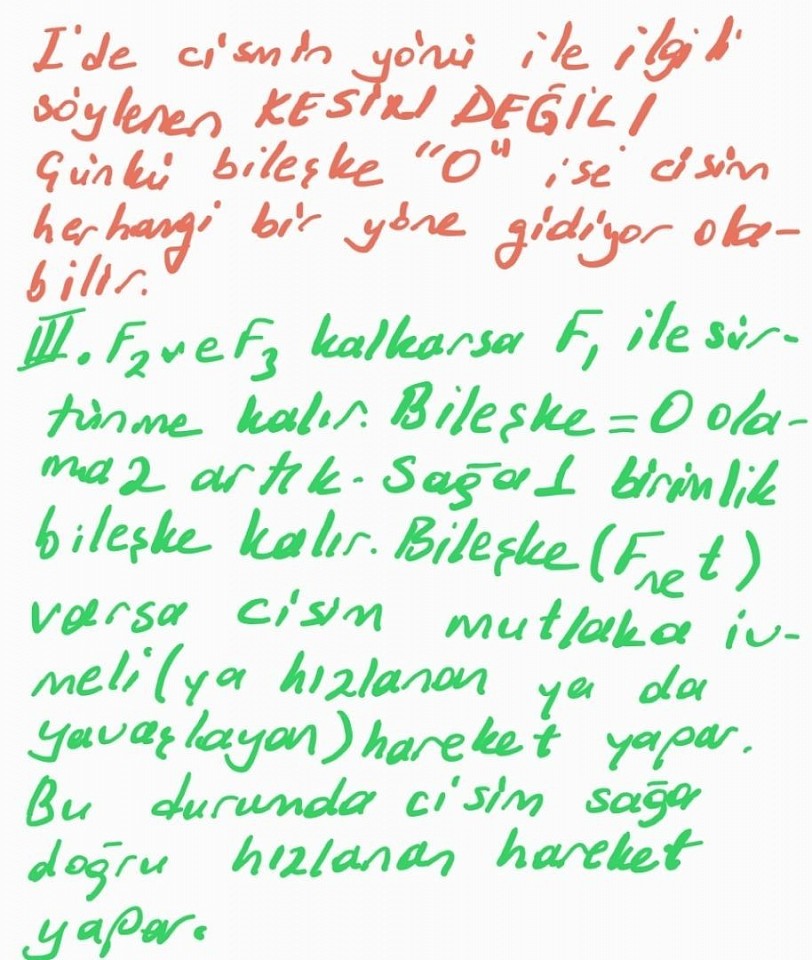 I'de cismin yönü ile ilgili
söylenen KESİN DEĞİL!
Çünkü bileşke "0" ise cisim
herhangi bir yöne gidiyor ola-
bilir.
III. F₂ ve F₃ kalkarsa F₁ ile sür-
tünme kalır. Bileşke = 0 ola-
maz artık. Sağa 1 birimlik
bileşke kalır. Bileşke (Fnet)
varsa cisim mutlaka iv-
meli (ya hızlanan ya da
yavaşlayan) hareket yapar.
Bu durumda cisim sağa
doğru hızlanan hareket
yapar.